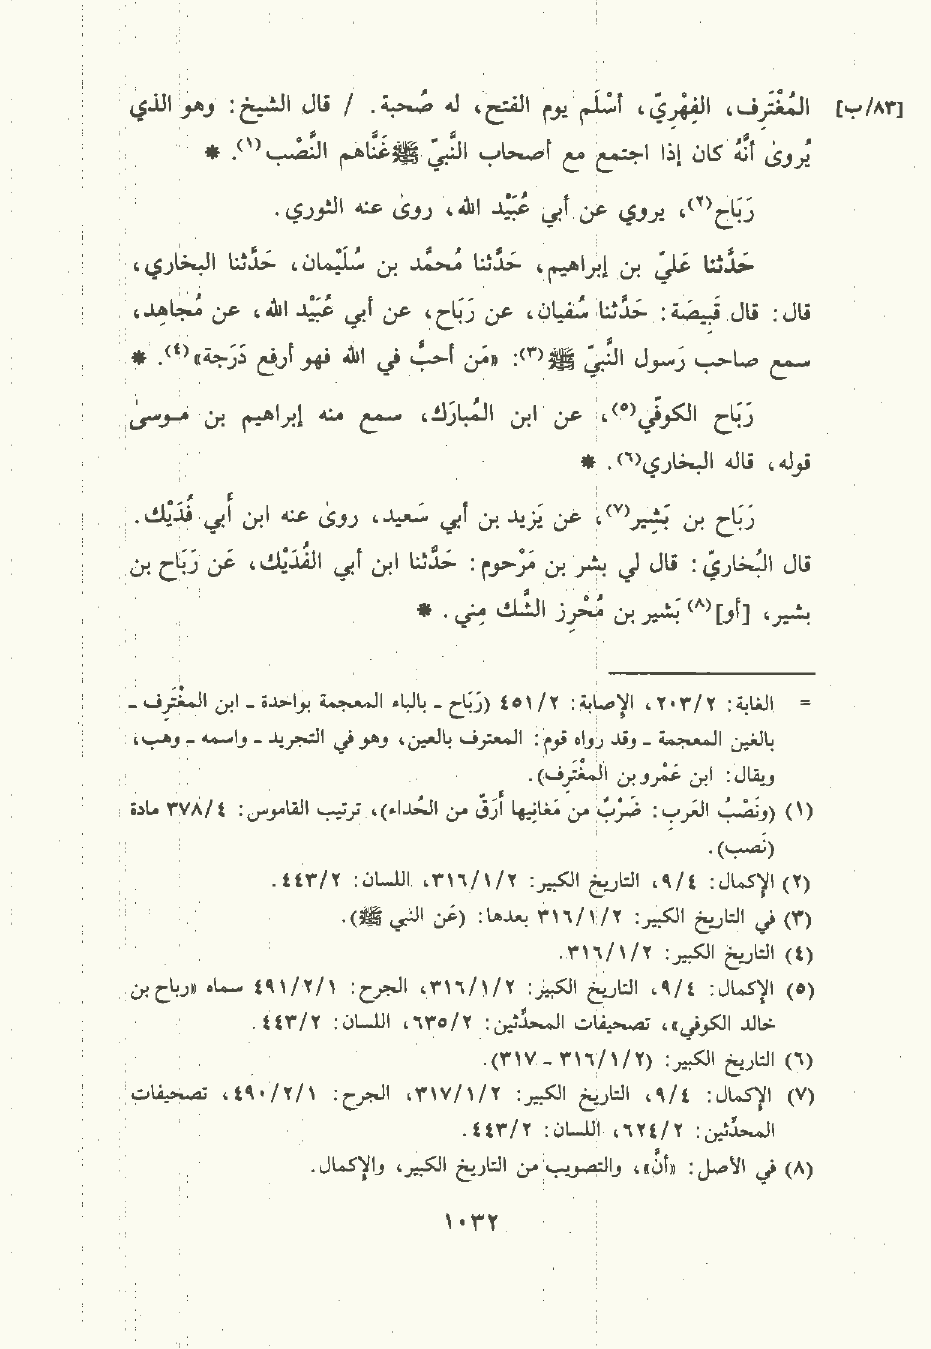 [٨٣/ب] المُغْتَرِف، الفِهْرِيّ، أسْلَم يوم الفتح، له صُحبة. / قال الشيخ: وهو الذي
يُروىٰ أنَّهُ كان إذا اجتمع مع أصحاب النَّبيّ ﷺ غَنَّاهم النَّصْب(١). *
رَبَاح(٢)، يروي عن أبي عُبَيْد الله، روىٰ عنه الثوري.
حَدَّثنا عَليّ بن إبراهيم، حَدَّثنا مُحمَّد بن سُلَيْمان، حَدَّثنا البخاري،
قال: قال قَبِيصَة: حَدَّثنا سُفيان، عن رَبَاح، عن أبي عُبَيْد الله، عن مُجاهِد،
سمع صاحب رَسول النَّبيّ ﷺ(٣): «مَن أحبَّ في الله فهو أرفع دَرَجة»(٤). *
رَبَاح الكوفّي(٥)، عن ابن المُبارَك، سمع منه إبراهيم بن موسىٰ
قوله، قاله البخاري(٦). *
رَبَاح بن بَشِير(٧)، عن يَزيد بن أبي سَعيد، روىٰ عنه ابن أَبي فُدَيْك.
قال البُخاريّ: قال لي بشر بن مَرْحوم: حَدَّثنا ابن أبي الفُدَيْك، عَن رَبَاح بن
بشير، [أو](٨) بَشير بن مُحْرِز الشَّك مِني. *
= الغابة: ٢٠٣/٢، الإصابة: ٤٥١/٢ (رَبَاح ـ بالباء المعجمة بواحدة ـ ابن المغْتَرِف ـ
بالغين المعجمة ـ وقد رواه قوم: المعترف بالعين، وهو في التجريد ـ واسمه ـ وهب،
ويقال: ابن عَمْرو بن المغْتَرِف).
(١) (ونَصْبُ العَربِ: ضَرْبٌ من مَغانِيها أَرَقّ من الحُداء)، ترتيب القاموس: ٣٧٨/٤ مادة
(نَصب).
(٢) الإكمال: ٩/٤، التاريخ الكبير: ٣١٦/١/٢، اللسان: ٤٤٣/٢.
(٣) في التاريخ الكبير: ٣١٦/١/٢ بعدها: (عَن النبي ﷺ).
(٤) التاريخ الكبير: ٣١٦/١/٢.
(٥) الإكمال: ٩/٤، التاريخ الكبير: ٣١٦/١/٢، الجرح: ٤٩١/٢/١ سماه «رباح بن
خالد الكوفي»، تصحيفات المحدِّثين: ٦٣٥/٢، اللسان: ٤٤٣/٢.
(٦) التاريخ الكبير: (٣١٦/١/٢ ـ ٣١٧).
(٧) الإكمال: ٩/٤، التاريخ الكبير: ٣١٧/١/٢، الجرح: ٤٩٠/٢/١، تصحيفات
المحدِّثين: ٦٢٤/٢، اللسان: ٤٤٣/٢.
(٨) في الأصل: «أنَّ»، والتصويب من التاريخ الكبير، والإكمال.
١٠٣٢